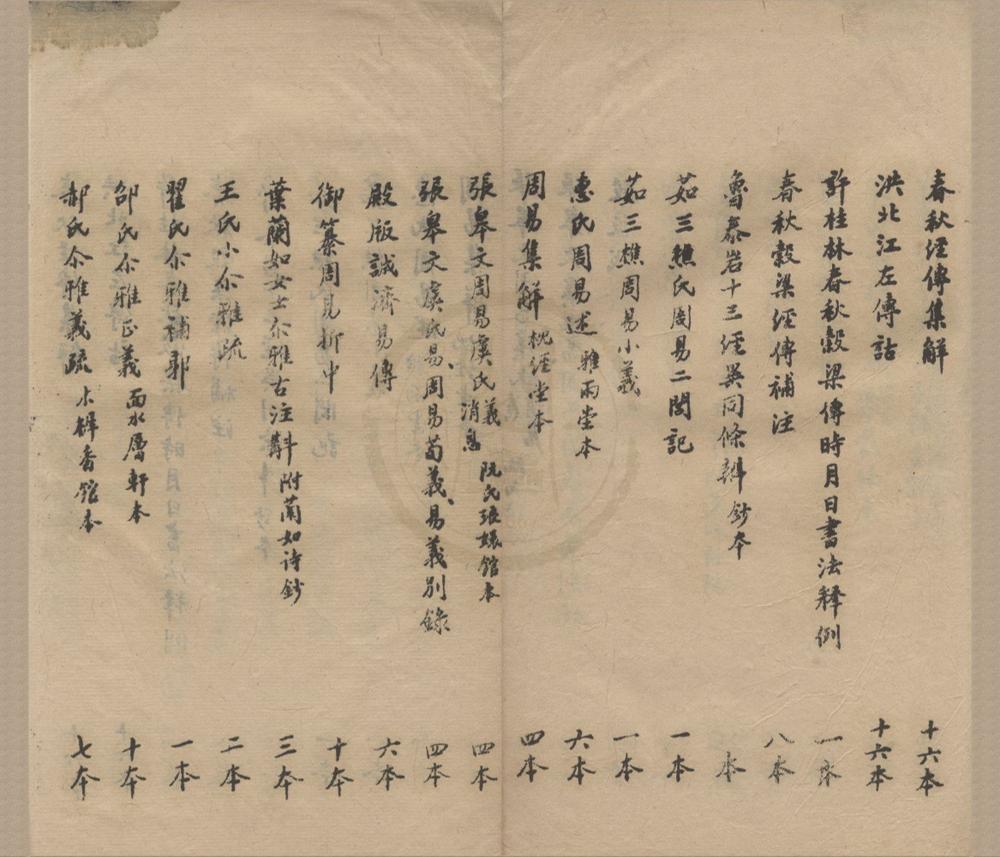 春秋經傳集解 十六本
洪北江左傳詁 十六本
許桂林春秋穀梁傳時月日書法釋例 一本
春秋穀梁經傳補注 八本
魯泰岩十三經異同條辨 鈔本 本
茹三樵氏周易二閭記 一本
茹三樵周易小義 一本
惠氏周易述 雅雨堂本 六本
周易集解 枕經堂本 四本
張皋文周易虞氏義消息 阮氏琅嬛館本 四本
張皋文虞氏易、周易荀義、易義別錄 四本
殿版誠濟易傳 六本
御纂周易折中 十本
葉蘭如女士尒雅古注斠 附蘭如诗鈔 三本
王氏小尒雅疏 二本
翟氏尒雅補郭 一本
邵氏尒雅正義 面水層軒本 十本
郝氏尒雅義疏 木樨香館本 七本